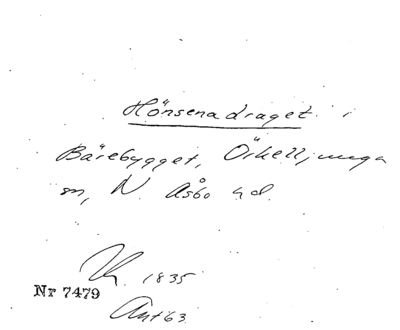 Hönsenadraget i
Bärebygget, Örkelljunga
sn, N. Åsbo hd.
1835
Nr 7479
Ant 63